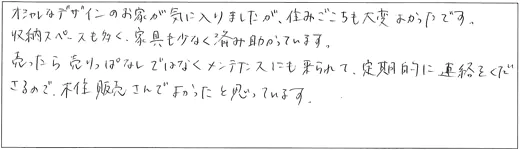 オシャレなデザインのお家が気に入りましたが、住みごこちも大変よかったです。
収納スペースも多く、家具も少なく済み助かっています。
売ったら売りっぱなしではなくメンテナンスにも来られて、定期的に連絡をくだ
さるので、木住販売さんでよかったと思っています。